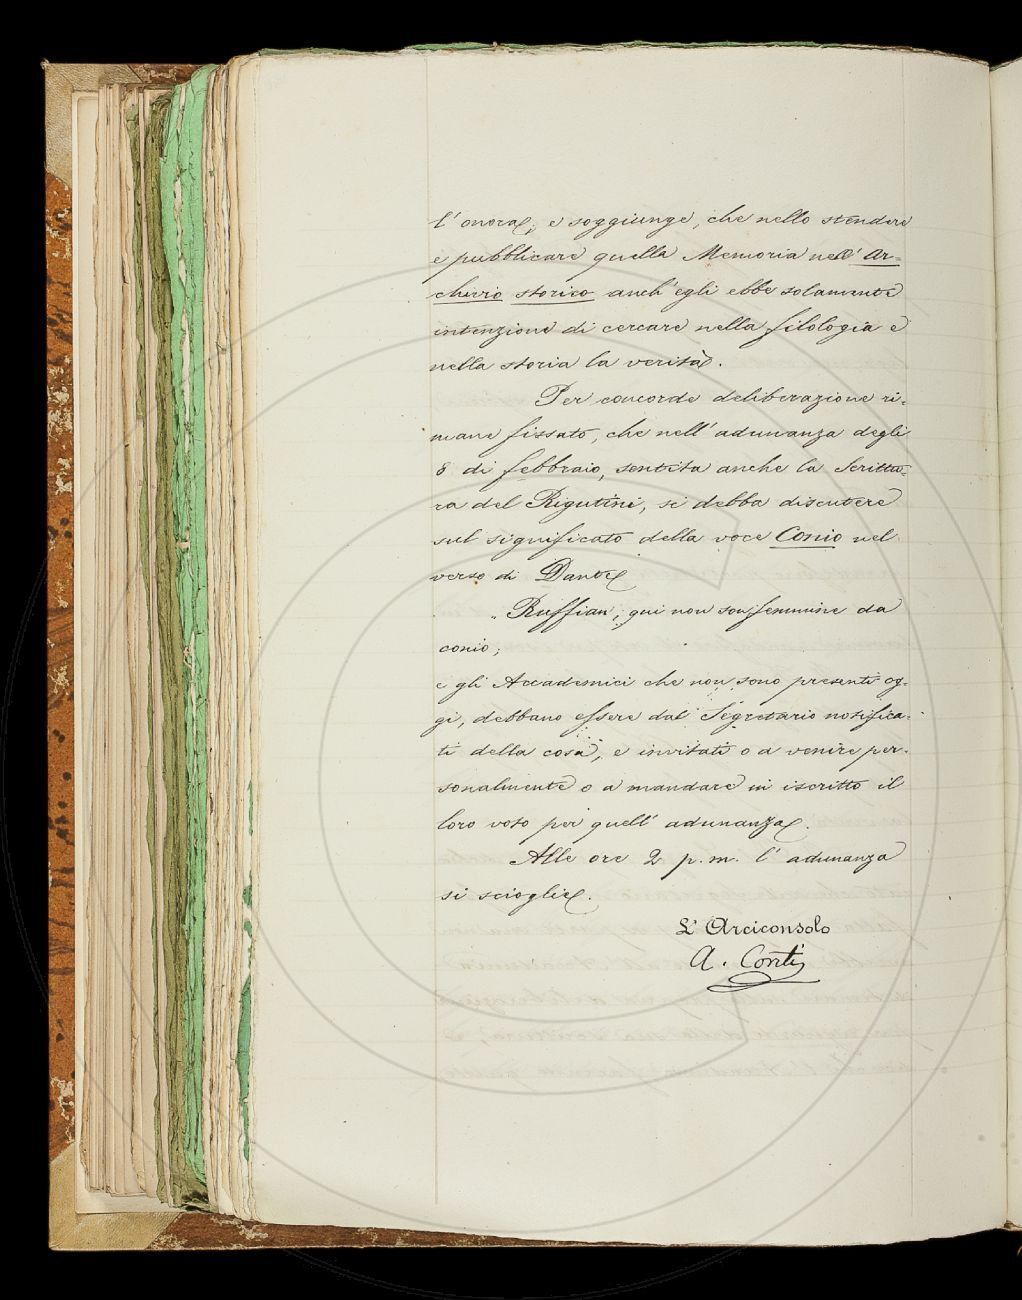 l'onora; e soggiunge, che nello stendere
e pubblicare quella Memoria nell'Ar=
chivio storico anch'egli ebbe solamente
intenzione di cercare nella filologia e
nella storia la verità.
Per concorde deliberazione ri=
mane fissato, che nell'adunanza degli
8 di febbraio, sentita anche la Scrittu=
ra del Rigutini, si debba discutere
sul significato della voce Conio nel
verso di Dante
„Ruffian; qui non son femmine da
conio;
e gli Accademici che non sono presenti og=
gi, debbano essere dal Segretario notifica=
ti della cosa, e invitati o a venire per=
sonalmente o a mandare in iscritto il
loro voto per quell'adunanza.
Alle ore 2 p.m. l'adunanza
si scioglie.
L'Arciconsolo
A. Conti